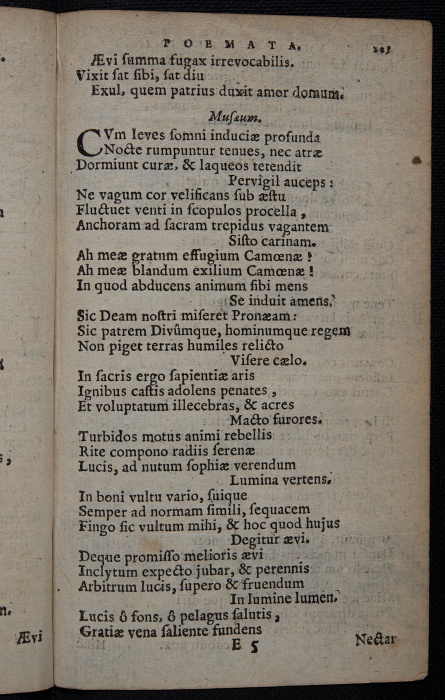 POEMATA. 105
Ævi ſumma fugax irrevocabilis.
Vixit ſat ſibi, ſat diu
Exul, quem patrius duxit amor domum.
Muſæum.
CVm leves ſomni induciæ profunda
Nocte rumpuntur tenues, nec atræ
Dormiunt curæ, & laqueos tetendit
Pervigil auceps:
Ne vagum cor velificans ſub æſtu
Fluctuet venti in ſcopulos procella,
Anchoram ad ſacram trepidus vagantem
Siſto carinam.
Ah meæ gratum effugium Camœnæ!
Ah meæ blandum exilium Camœnæ!
In quod abducens animum ſibi mens
Se induit amens.
Sic Deam noſtri miſeret Pronæam:
Sic patrem Divûmque, hominumque regem
Non piget terras humiles relicto
Viſere cælo.
In ſacris ergo ſapientiæ aris
Ignibus caſtis adolens penates,
Et voluptatum illecebras, & acres
Macto furores.
Turbidos motus animi rebellis
Rite compono radiis ſerenæ
Lucis, ad nutum ſophiæ verendum
Lumina vertens.
In boni vultu vario, ſuique
Semper ad normam ſimili, ſequacem
Fingo ſic vultum mihi, & hoc quod hujus
Degitur ævi.
Deque promiſſo melioris ævi
Inclytum expecto jubar, & perennis
Arbitrum lucis, ſupero & fruendum
In lumine lumen.
Lucis ô fons, ô pelagus ſalutis,
Gratiæ vena ſaliente fundens
E 5 Nectar
Ævi